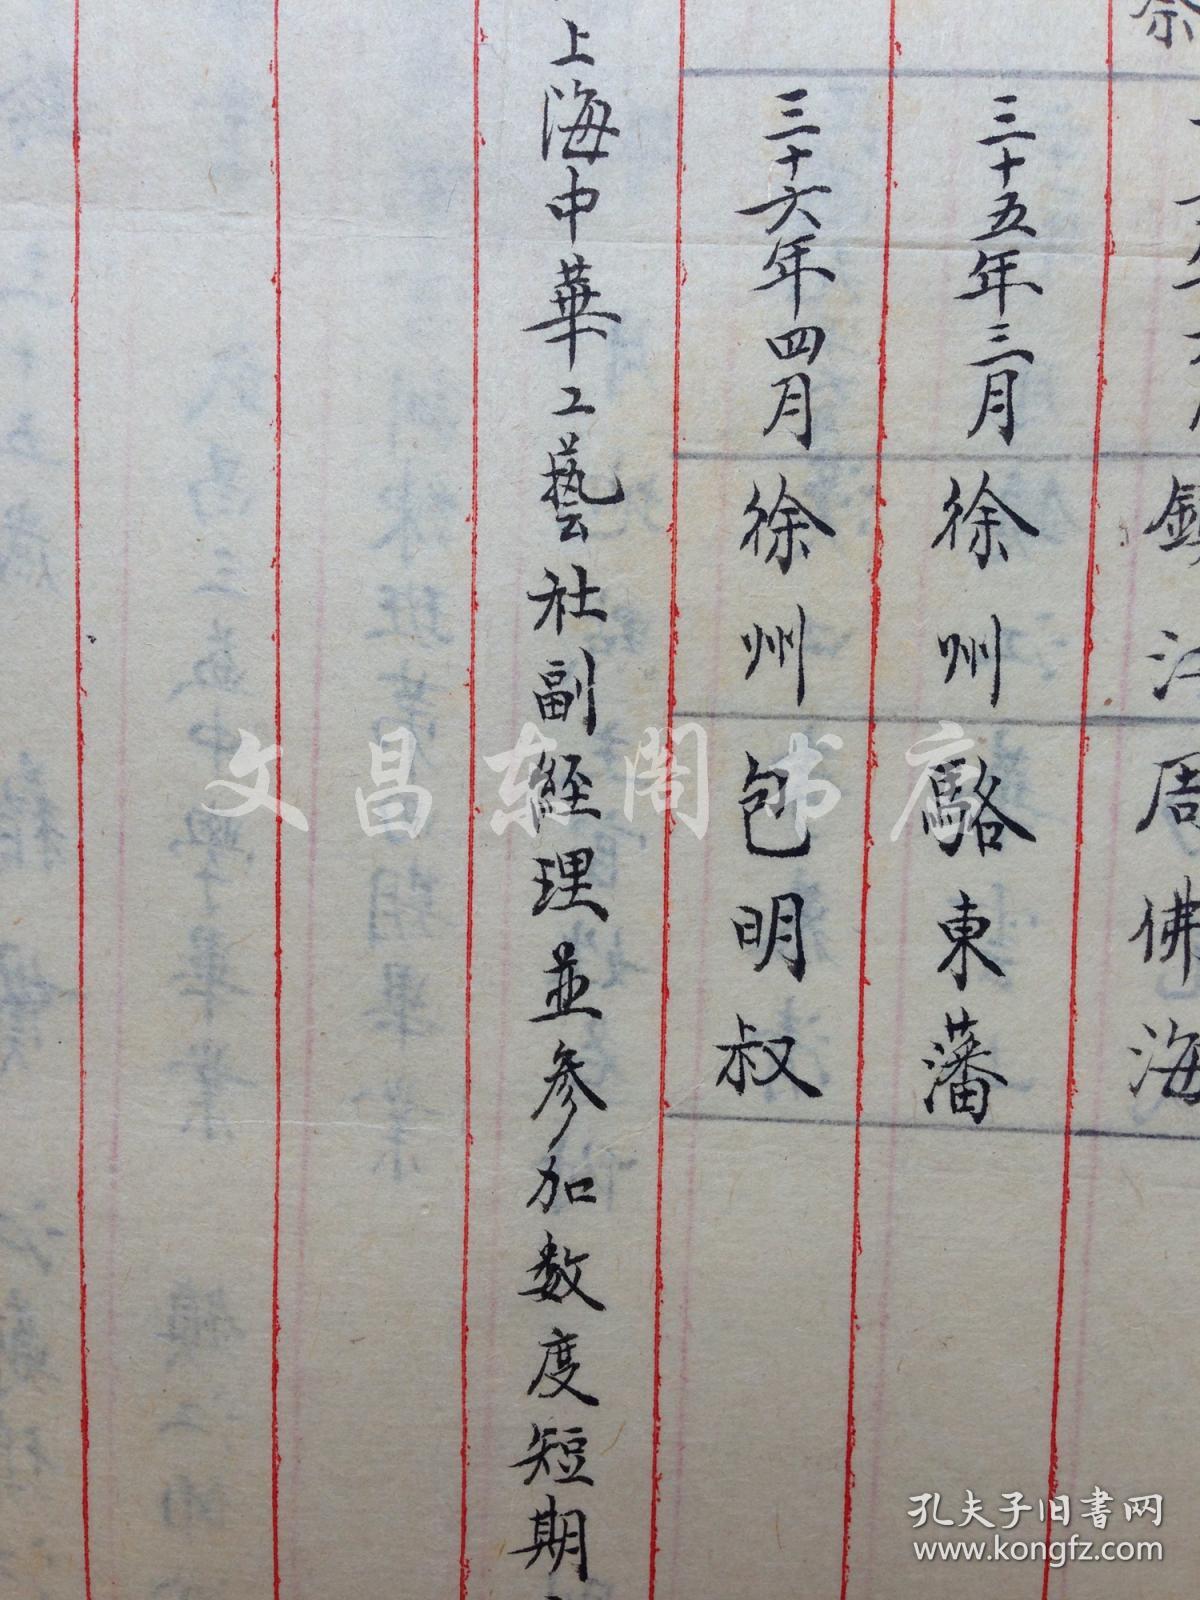 鎮江 周佛海
三十五年三月 徐州 駱東藩
三十六年四月 徐州 包明叔
上海中華工藝社副經理並參加數度短期
文昌东阁书店
孔夫子旧书网
www.kongfz.com